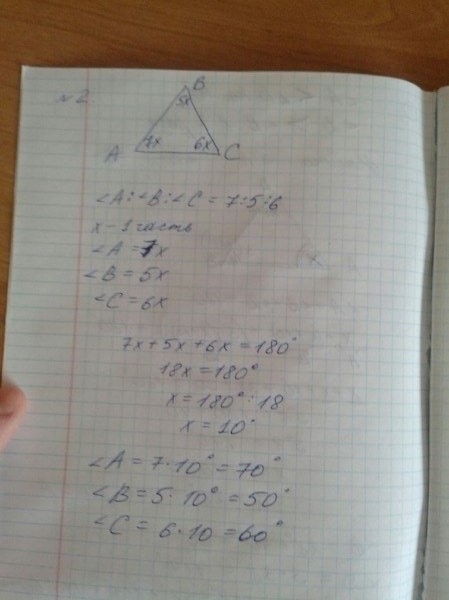 №2
B
5x
7x
6x
A
C
∠A:∠B:∠C = 7:5:6
x - 1 часть
∠A = 7x
∠B = 5x
∠C = 6x
7x + 5x + 6x = 180°
18x = 180°
x = 180° : 18
x = 10°
∠A = 7 · 10° = 70°
∠B = 5 · 10° = 50°
∠C = 6 · 10 = 60°